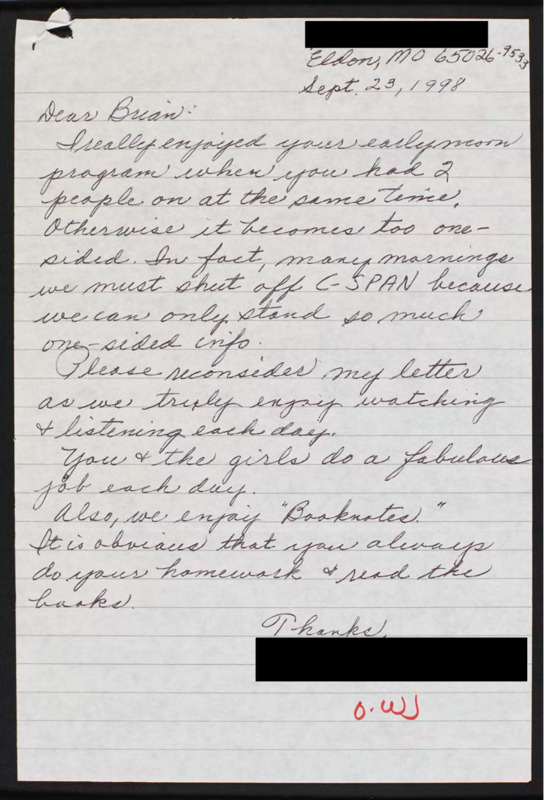 Eldon, MO 65026-9533
Sept. 23, 1998
Dear Brian:
I really enjoyed your early morn
program when you had 2
people on at the same time.
Otherwise it becomes too one-
sided. In fact, many mornings
we must shut off C-SPAN because
we can only stand so much
one-sided info.
Please reconsider my letter
as we truly enjoy watching
& listening each day.
You & the girls do a fabulous
job each day.
Also, we enjoy "Booknotes."
It is obvious that you always
do your homework & read the
books.
Thanks,